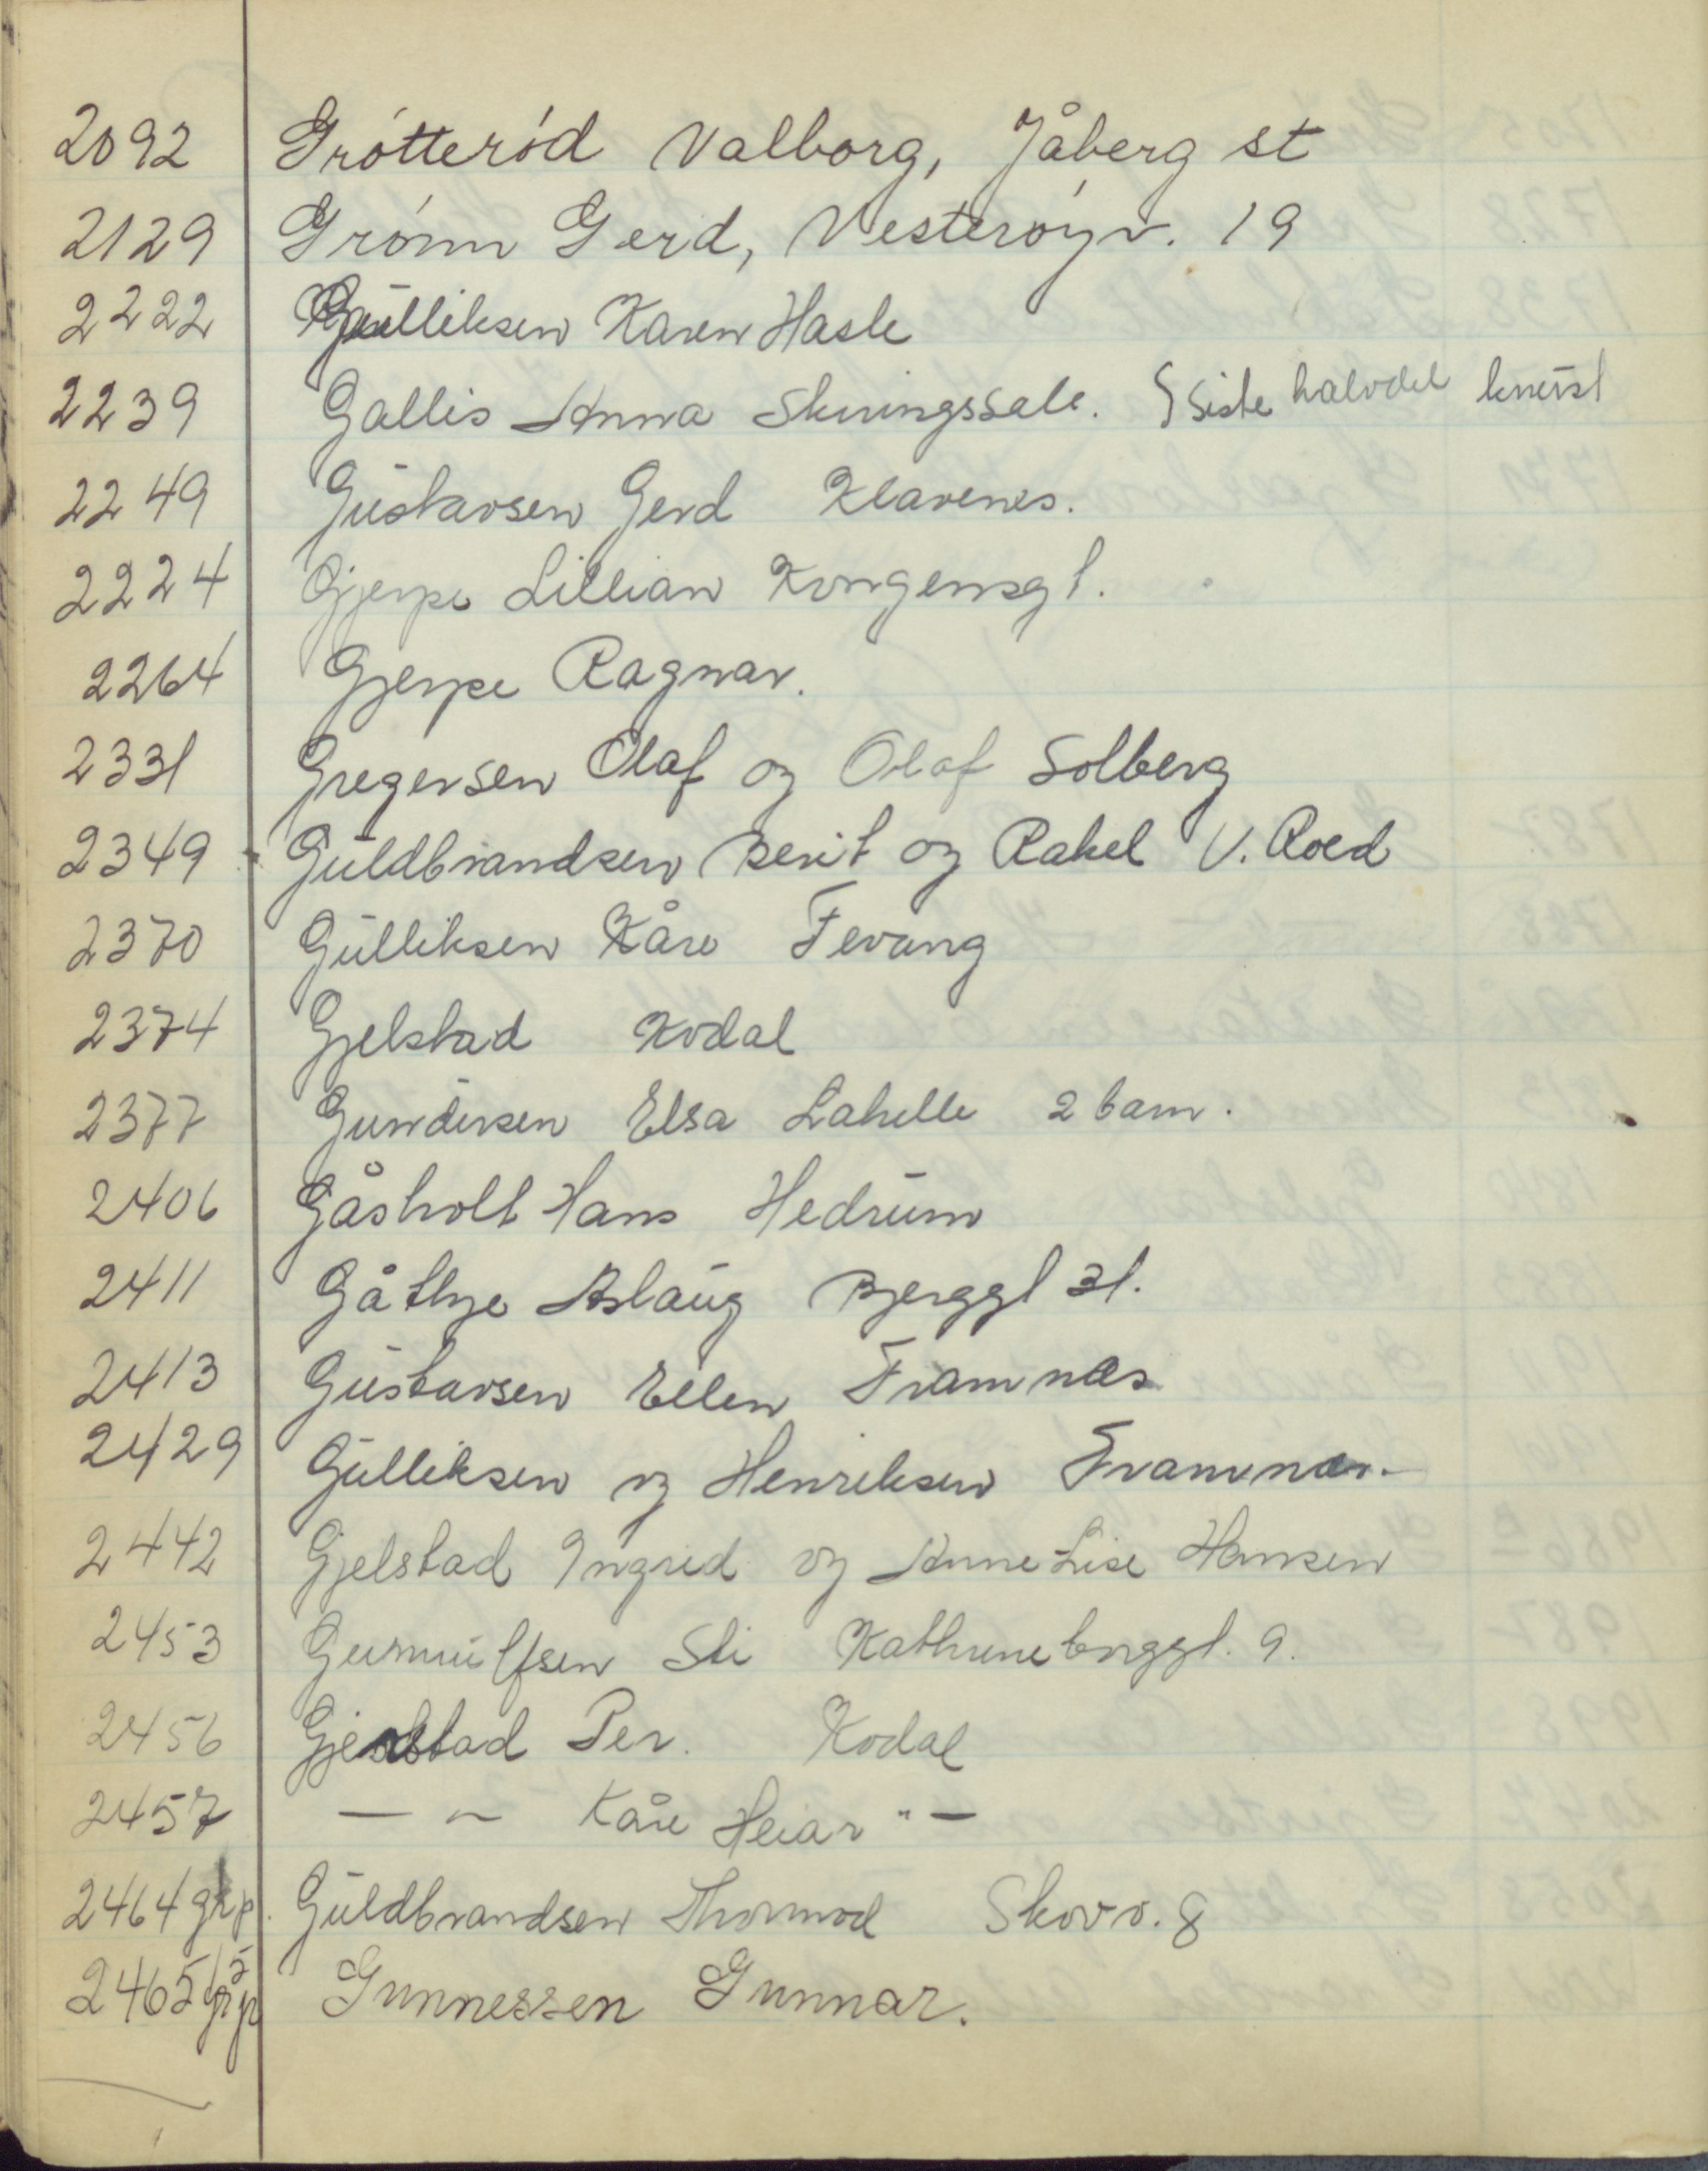 2092 Grótteród Valborg, Jåberg st
2129 Grónn Gerd, Vesteróyv. 19
2222 Gulliksen Karen Hasle
2239 Gallis Anna Skiringssale. Siste halvdel knust
2249 Gustavsen Gerd Klavenes.
2224 Gjerpe Lillian Kongensgt.
2264 Gjerpe Ragnar.
2331 Gregersen Olaf og Olaf Solberg
2349 Guldbrandsen Berit og Rakel V. Roed
2370 Gulliksen Kåre Fevang
2374 Gjelstad Kodal
2377 Gundersen Elsa Lahelle 2 barn.
2406 Gåsholt Hans Hedrum
2411 Gåthye Aslaug Bjerggt 31.
2413 Gustavsen Ellen Framnæs
2429 Gulliksen og Henriksen Framnæs.
2442 Gjelstad Ingrid og Anne-Lise Hansen
2453 Gunnulfsen Kathrineborggt. 9.
2456 Gjelstad Per. Kodal
2457 — " — Kåre Heiar " —
2464 grp. Guldbrandsen Thormod Skovv. 8
2465 grp Gunnessen Gunnar.